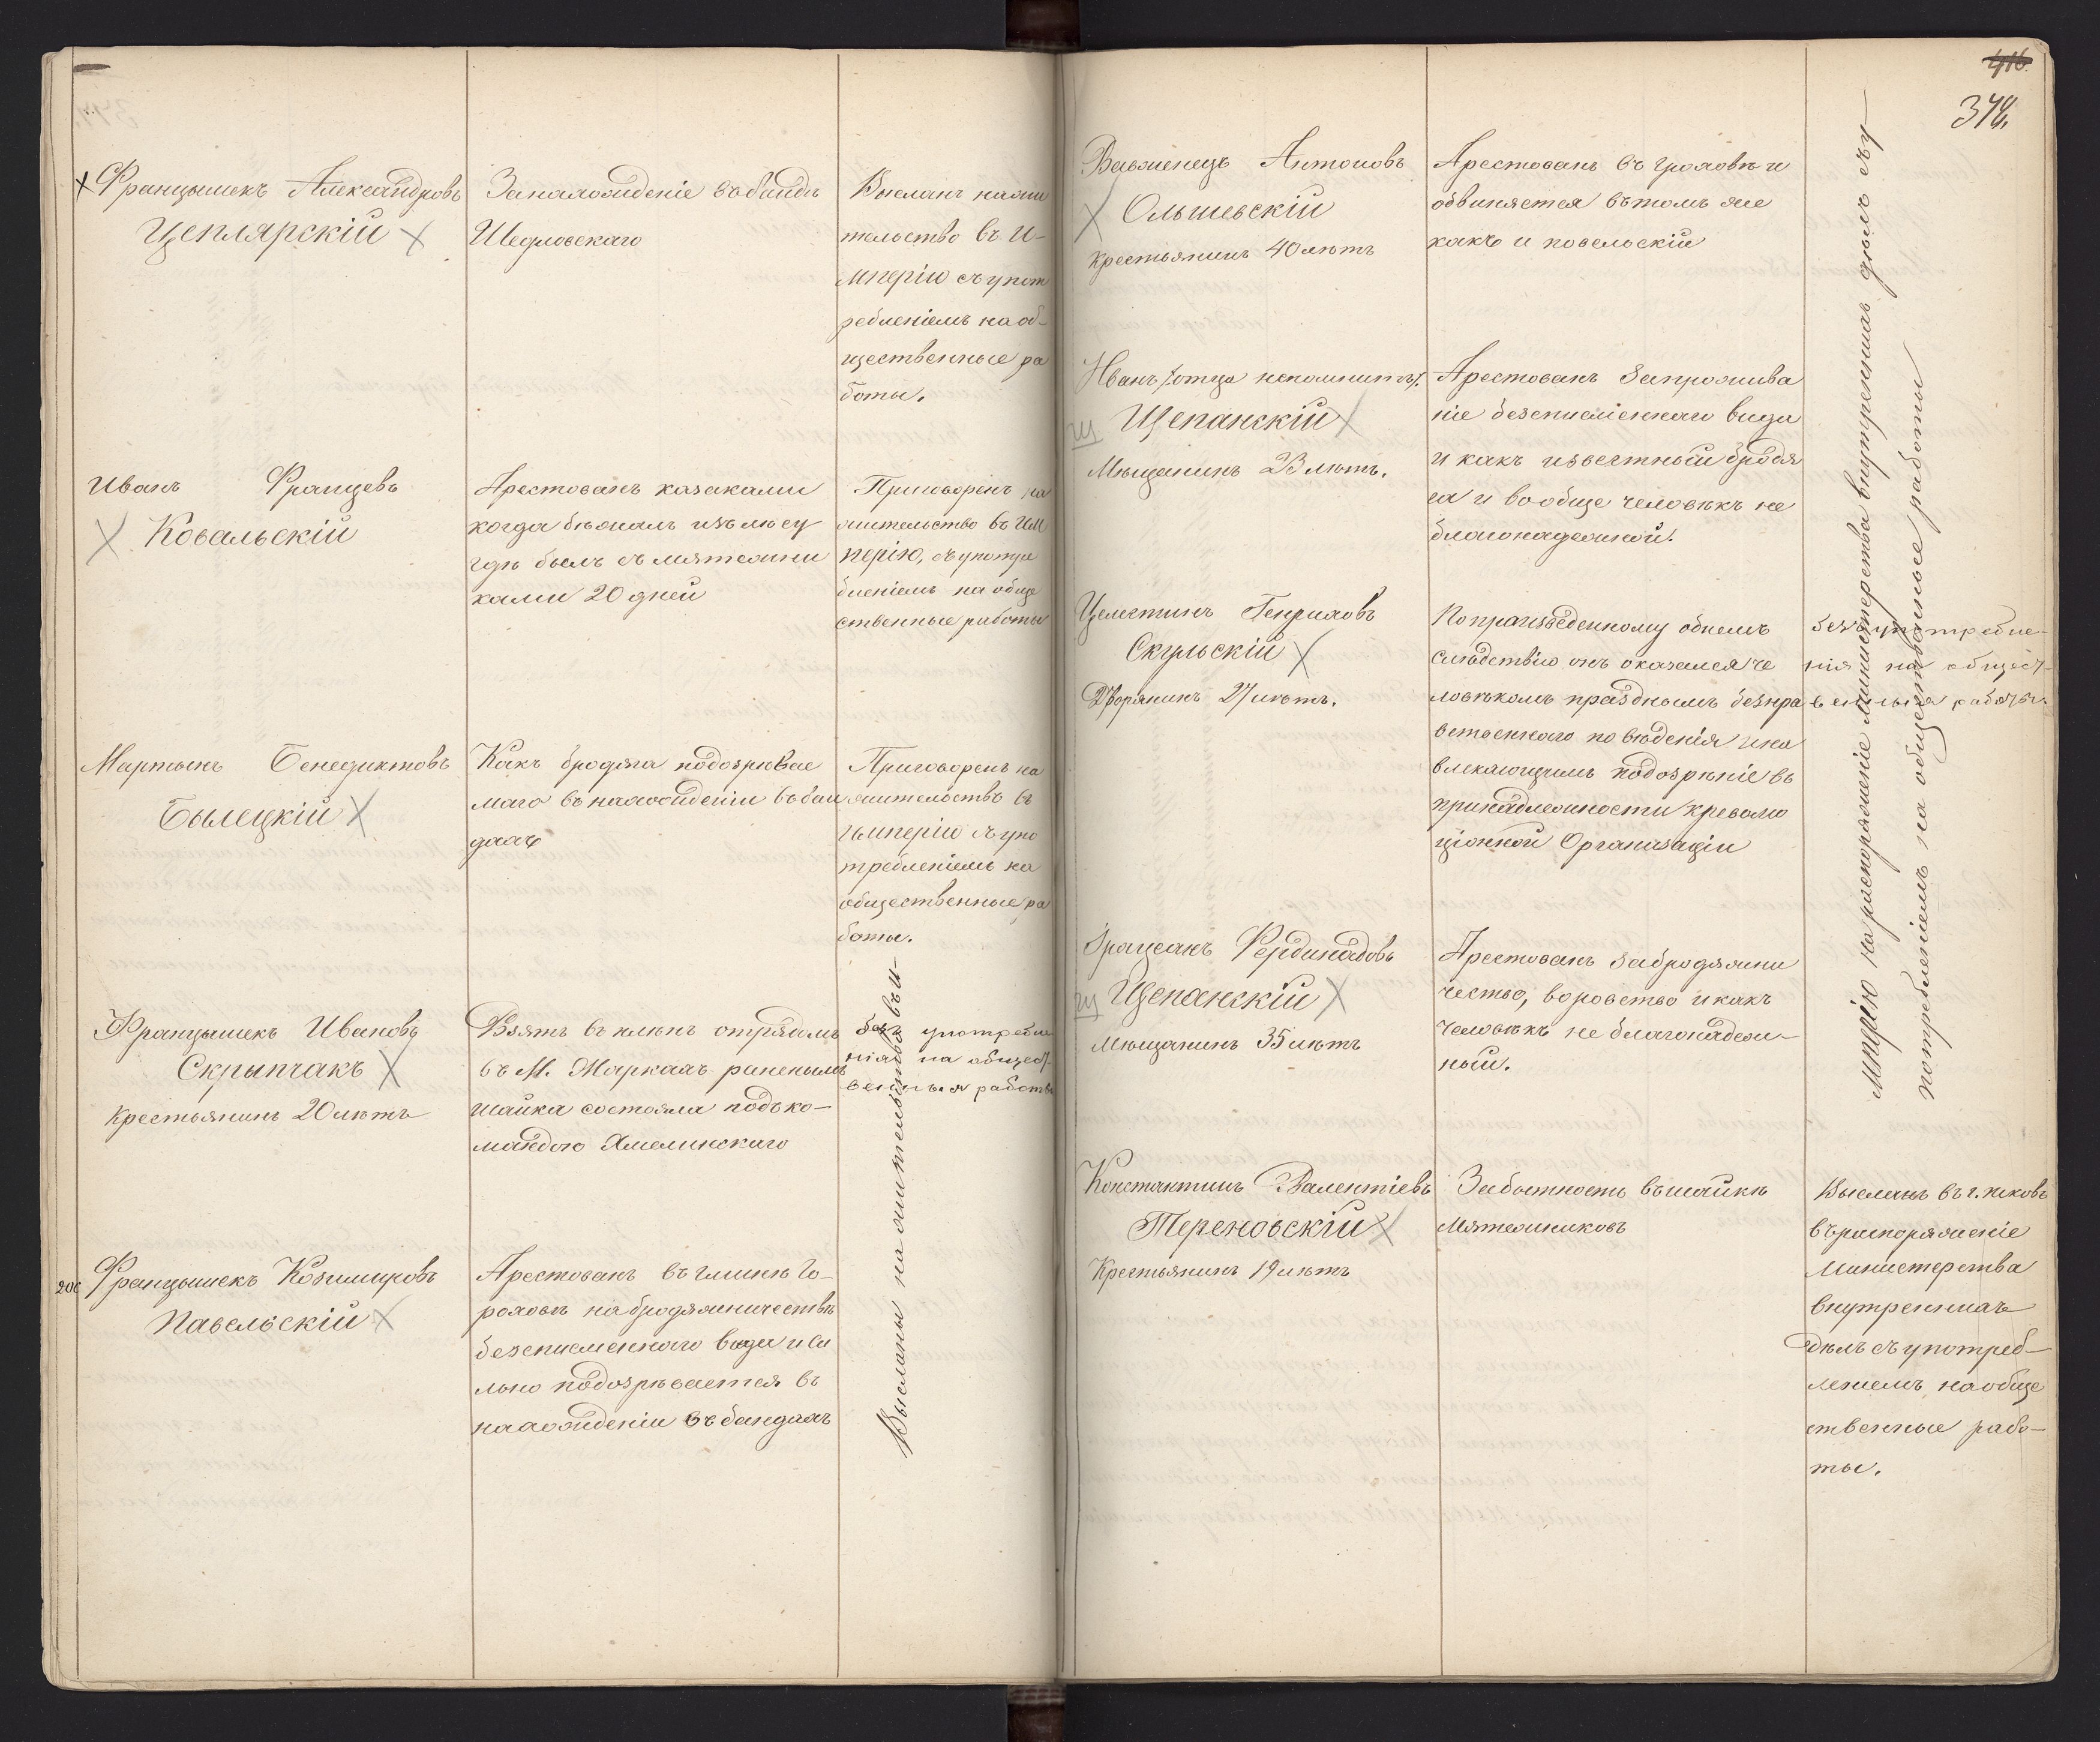 Францышекъ Александровъ
Цеплярскій
Занахожденіе въ бандѣ
Шедловскаго
Высланъ нажи
тельство въ И-
мперію съ упот
ребленіемъ на об-
щественные ра
боты.
Иванъ Францевъ
Ковальскій
Арестованъ казаками
когда бѣжалъ изъ лѣсу
гдѣ былъ съ мятежни
ками 20 дней
Приговоренъ на
жительство въ Им
перію, съ употре
бленіемъ на обще
ственные работы
Мартынъ Бенедиктовъ
Былецкій
Какъ бродяга подозрѣвае
маго въ нахожденіи въ бан
дахъ
Приговоренъ на
жительство въ
Имперію съ упо
требленіемъ на
общественные ра
боты.
Францышекъ Ивановъ
Скрыпчакъ
крестьянинъ 20 лѣтъ
Взятъ въ плѣнъ отрядомъ
въ М. Жаркахъ раненымъ
шайка состояла подъ ко-
мандою Хмелинскаго
безъ употребле
нія на общест-
венныя работы
206 Францышекъ Козимировъ
Павельскій
Арестованъ въ гминѣ Го-
роховѣ на бродяжничествѣ
безписменнаго вида и си
льно подозрѣвается въ
нахожденіи въ бандахъ
Высланы на жительство въ И-
416
374.
Вавженецъ Антоновъ
Ольшевскій
крестьянинъ 40 лѣтъ
Арестованъ въ Гроховѣ и
обвиняется въ томъ же
какъ и повельскій
Иванъ /:отца непомнитъ:/
Щепанскій
Мѣщанинъ 23 лѣтъ.
Арестованъ запрожива
ніе безписменнаго вида
и какъ извѣстный бродя
га и вообще человѣкъ не
благонадежной.
Целестинъ Генриховъ
Скульскій
Дворянинъ 27 лѣтъ.
По произведенному обнемъ
слѣдствію онъ оказался че
ловѣкомъ празднымъ безнра
вственнаго поведенія и на
влекающимъ подозрѣніе въ
принадлежности къ револю
ціонной Организаціи
безъ употребле-
нія на общест-
венныя работы
Францъ Фердинадовъ
Щепанскій
Мѣщанинъ 35 лѣтъ
Арестованъ за бродяжни
чество, воровство и какъ
человѣкъ не благонадеж-
ный.
Константинъ Валентіевъ
Тереновскій
Крестьянинъ 19 лѣтъ
Забытность въ шайкѣ
Мятежниковъ
Высланъ въ г. псковъ
въ распоряженіе
Министерства
внутреннихъ
дѣлъ съ употреб-
леніемъ на обще
ственные рабо-
ты.
мперію на распоряженіе Министерства внутреннихъ дѣлъ съ у-
потребленіемъ на общественные работы